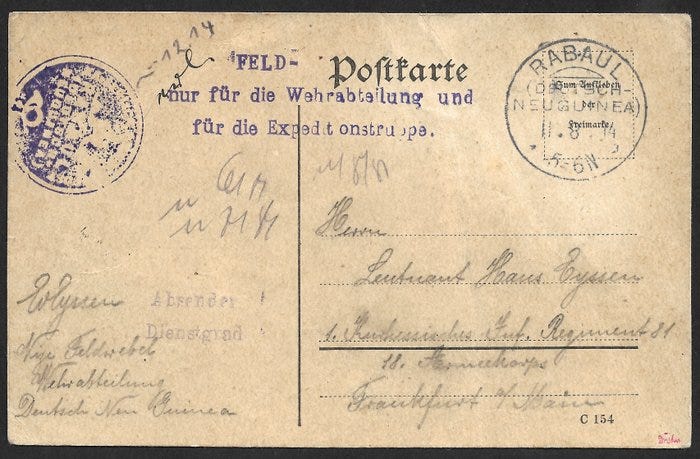 12 14
FELD-
Postkarte
nur für die Wehrabteilung und
für die Expeditionstruppe.
RABAUL
(DEUTSCH-
NEUGUINEA)
8 14
5-6N
Zum Aufkleben
der
Freimarke
Herrn
Leutnant Hans Eyssen
1. Kurhessisches Inf. Regiment 81
18. Armeekorps
Frankfurt a/Main
C 154
Eyssen
Absender
Dienstgrad
Vize Feldwebel
Wehrabteilung
Deutsch Neu Guinea